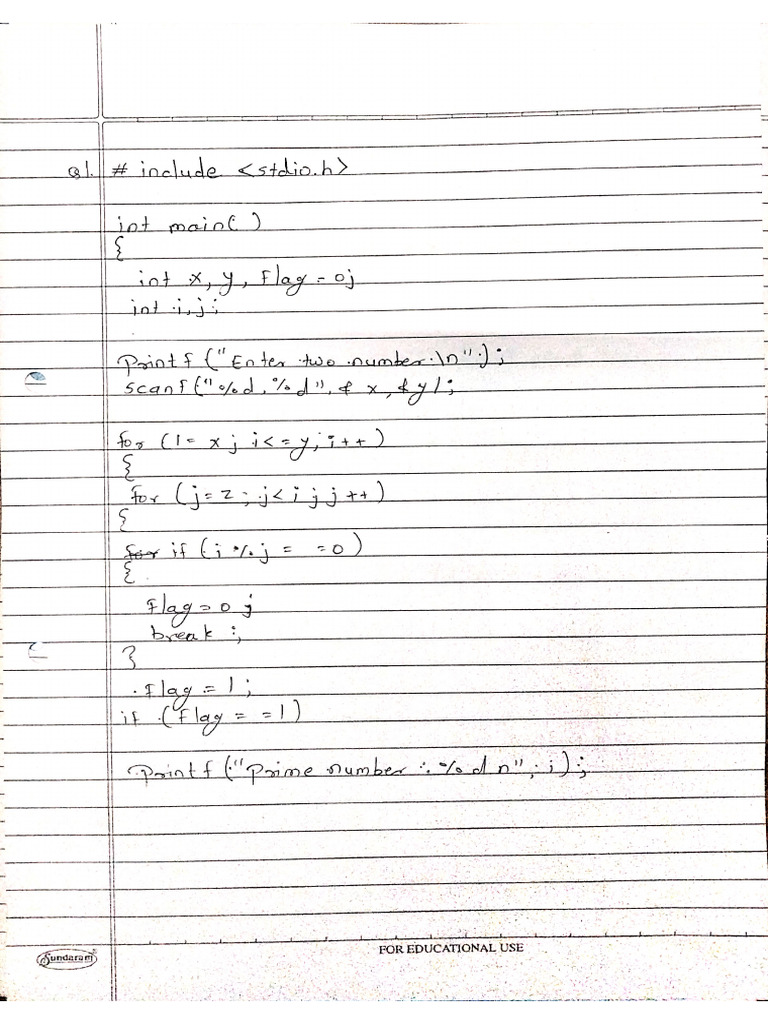 Q1. # include <stdio.h>
int main( )
{
int x, y, flag = 0;
int i, j;
printf ("Enter two number \n");
scanf ("%d, %d", & x, & y);
for (i = x ; i <= y; i++)
{
for (j = 2 ; j < i ; j ++)
{
for if (i % j = = 0)
{
flag = 0 ;
break ;
}
flag = 1 ;
if (flag = = 1)
printf ("prime number : %d n", i);
Sundaram
FOR EDUCATIONAL USE